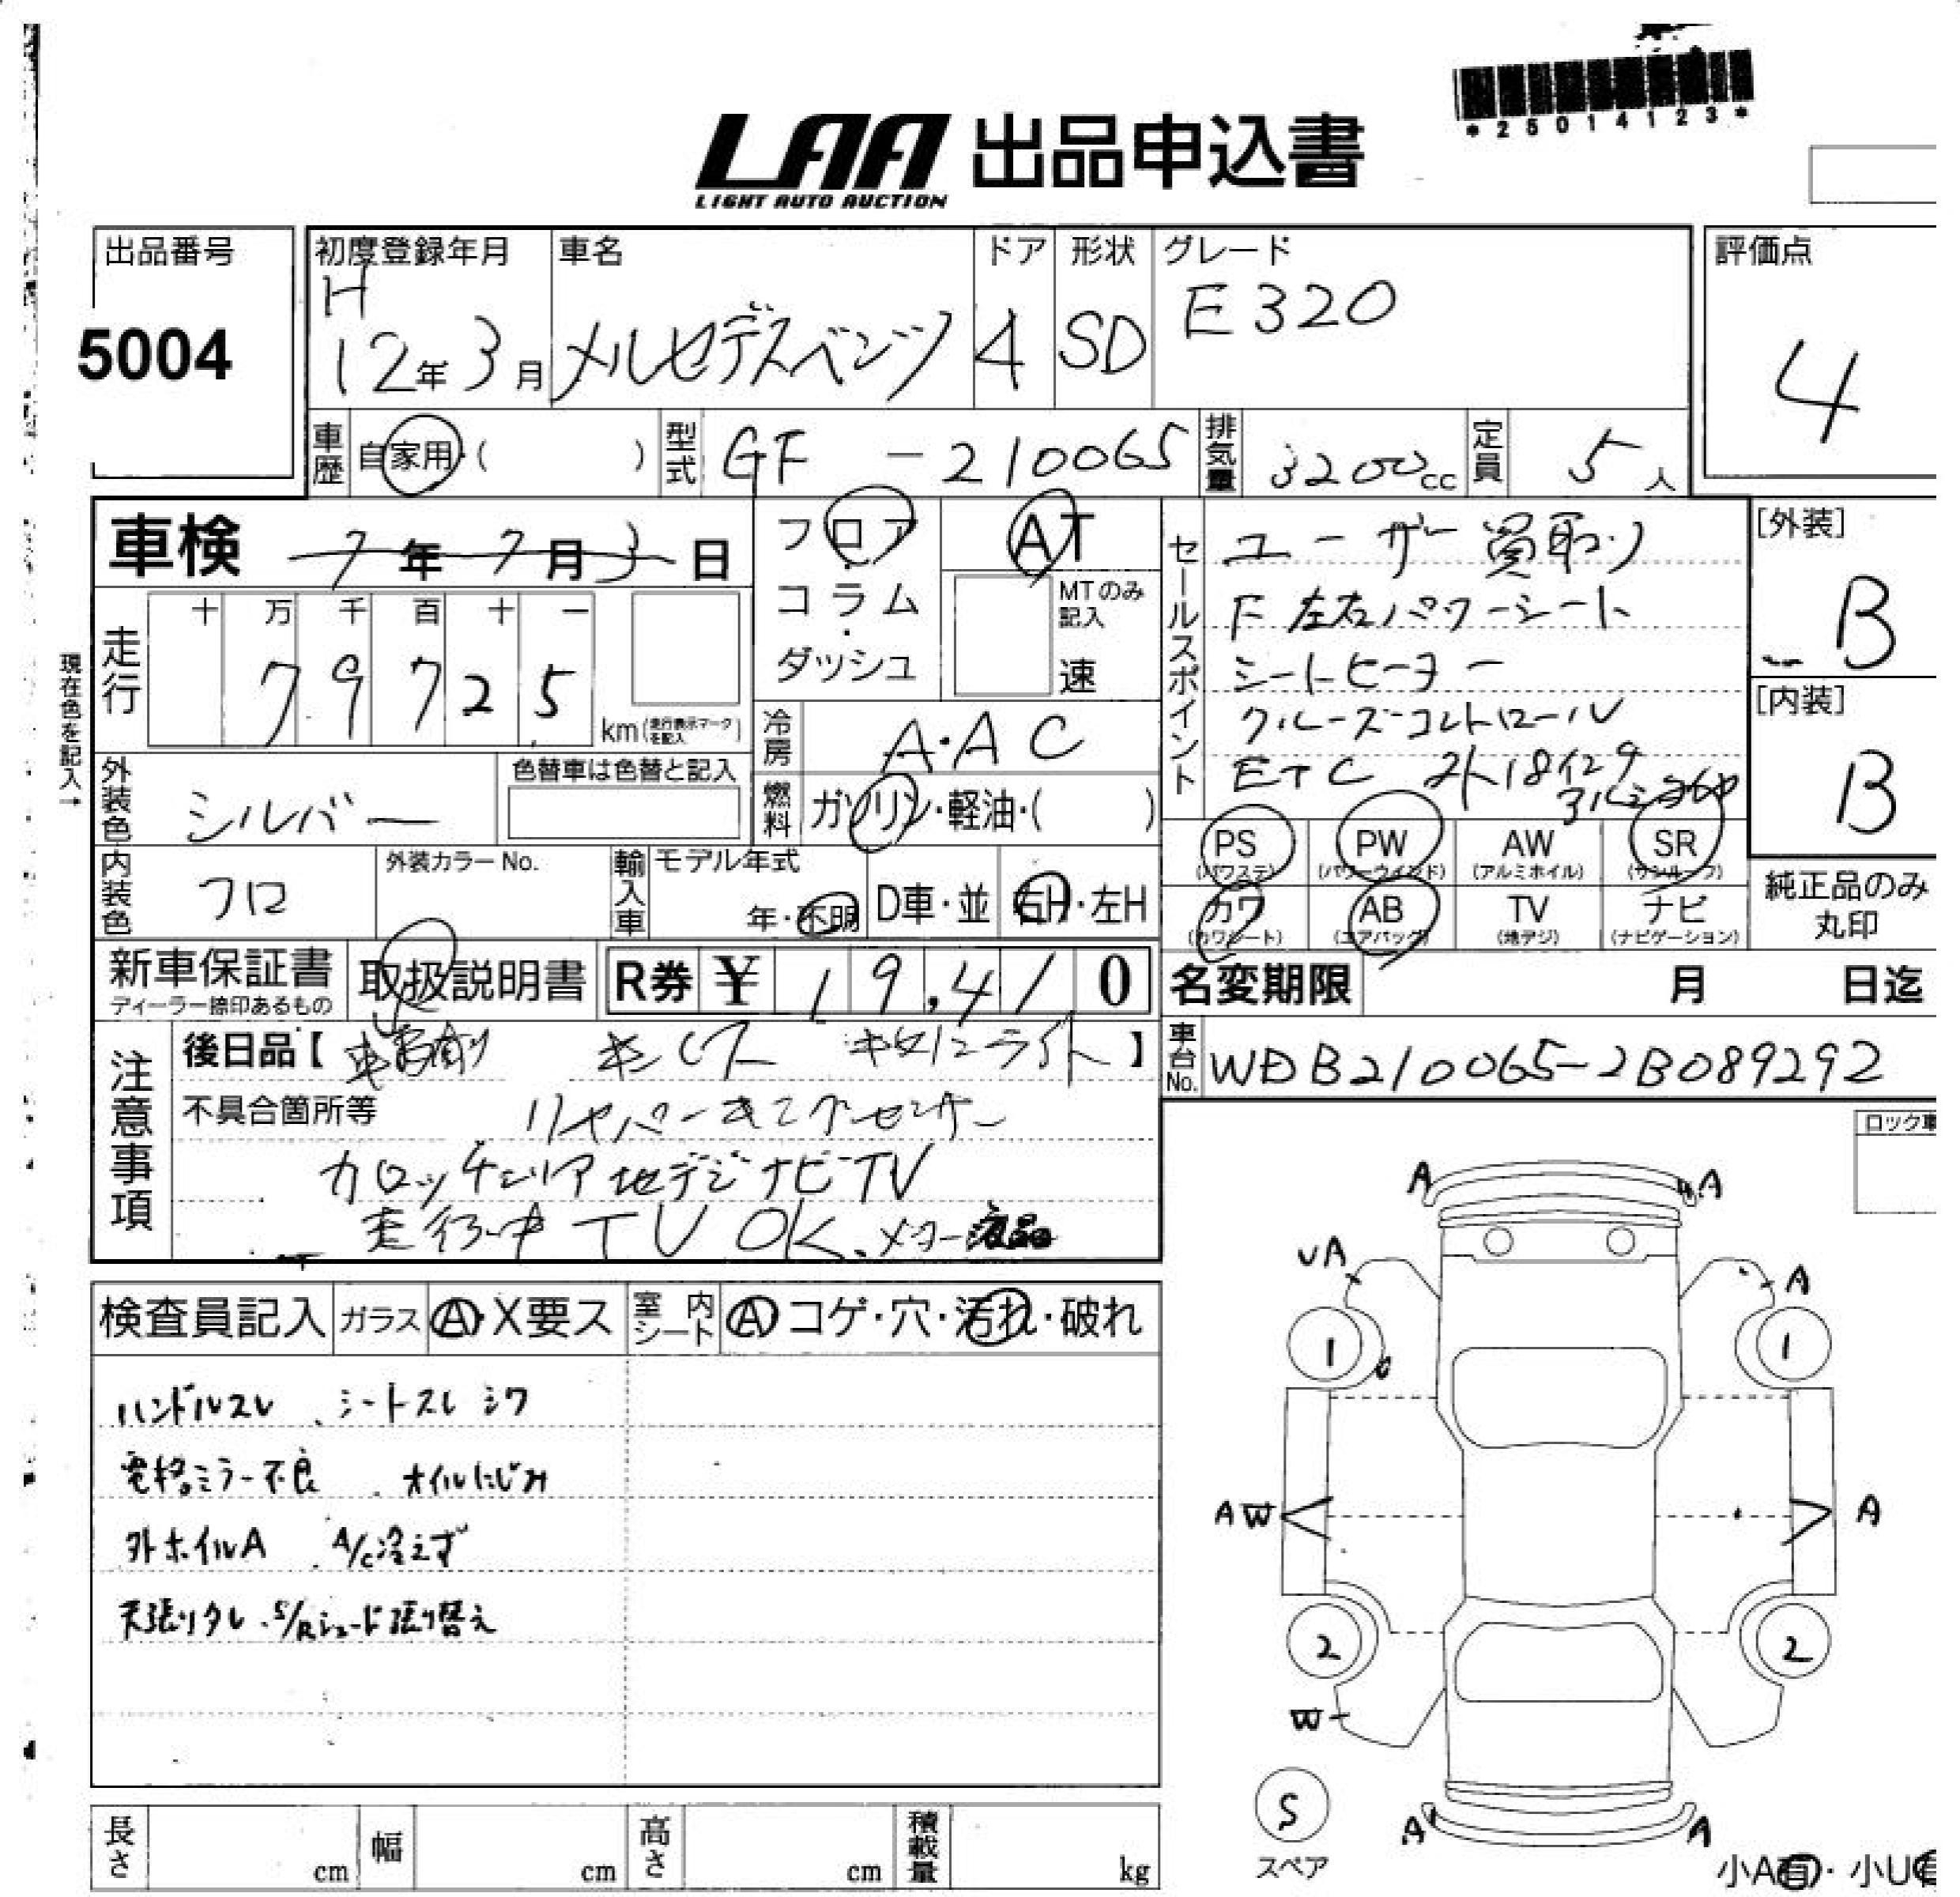 *25014123*
LAA 出品申込書
LIGHT AUTO AUCTION
出品番号 5004
初度登録年月 H 12年 3月
車名 メルセデスベンツ
ドア 4
形状 SD
グレード E320
評価点 4
車歴 自家用・( )
型式 GF -210065
排気量 3200cc
定員 5人
車検 7年 7月 3日
フロア・コラム・ダッシュ
AT
MTのみ記入
速
セールスポイント
ユーザー買取り
F左右パワーシート
シートヒーター
クルーズコントロール
ETC
[外装] B
[内装] B
現在色を記入→
走行 十 万 千 百 十 一
79725 km(走行表示マークを記入)
冷房 A・AC
燃料 ガソリン・軽油・( )
外装色 シルバー
色替車は色替と記入
内装色 クロ
外装カラーNo.
輸入車 モデル年式
年・不明 D車・並 右H・左H
PS (パワステ)
PW (パワーウインド)
AW (アルミホイル)
SR (サンルーフ)
カワ (カワシート)
AB (エアバッグ)
TV (地デジ)
ナビ (ナビゲーション)
純正品のみ丸印
新車保証書
ディーラー捺印あるもの
取扱説明書
R券 ¥ 19,410
名変期限 月 日迄
注意事項
後日品【 キセノンライト 】
車台No. WDB210065-2B089292
不具合箇所等
リヤパーキングセンサー
カロッツェリア地デジナビTV
走行中TV OK、メーター液晶
ロック車
検査員記入 ガラス A・X要ス 室内シート A コゲ・穴・汚れ・破れ
ハンドルスレ、シートスレ シワ
電格ミラー不良、オイルにじみ
外ホイルA、A/C冷えず
天張りタレ、S/Rシェード張り替え
A A
UA A
1 1
AW A
2 2
W
S
スペア
A A
小A有・小U有
長さ cm 幅 cm 高さ cm 積載量 kg